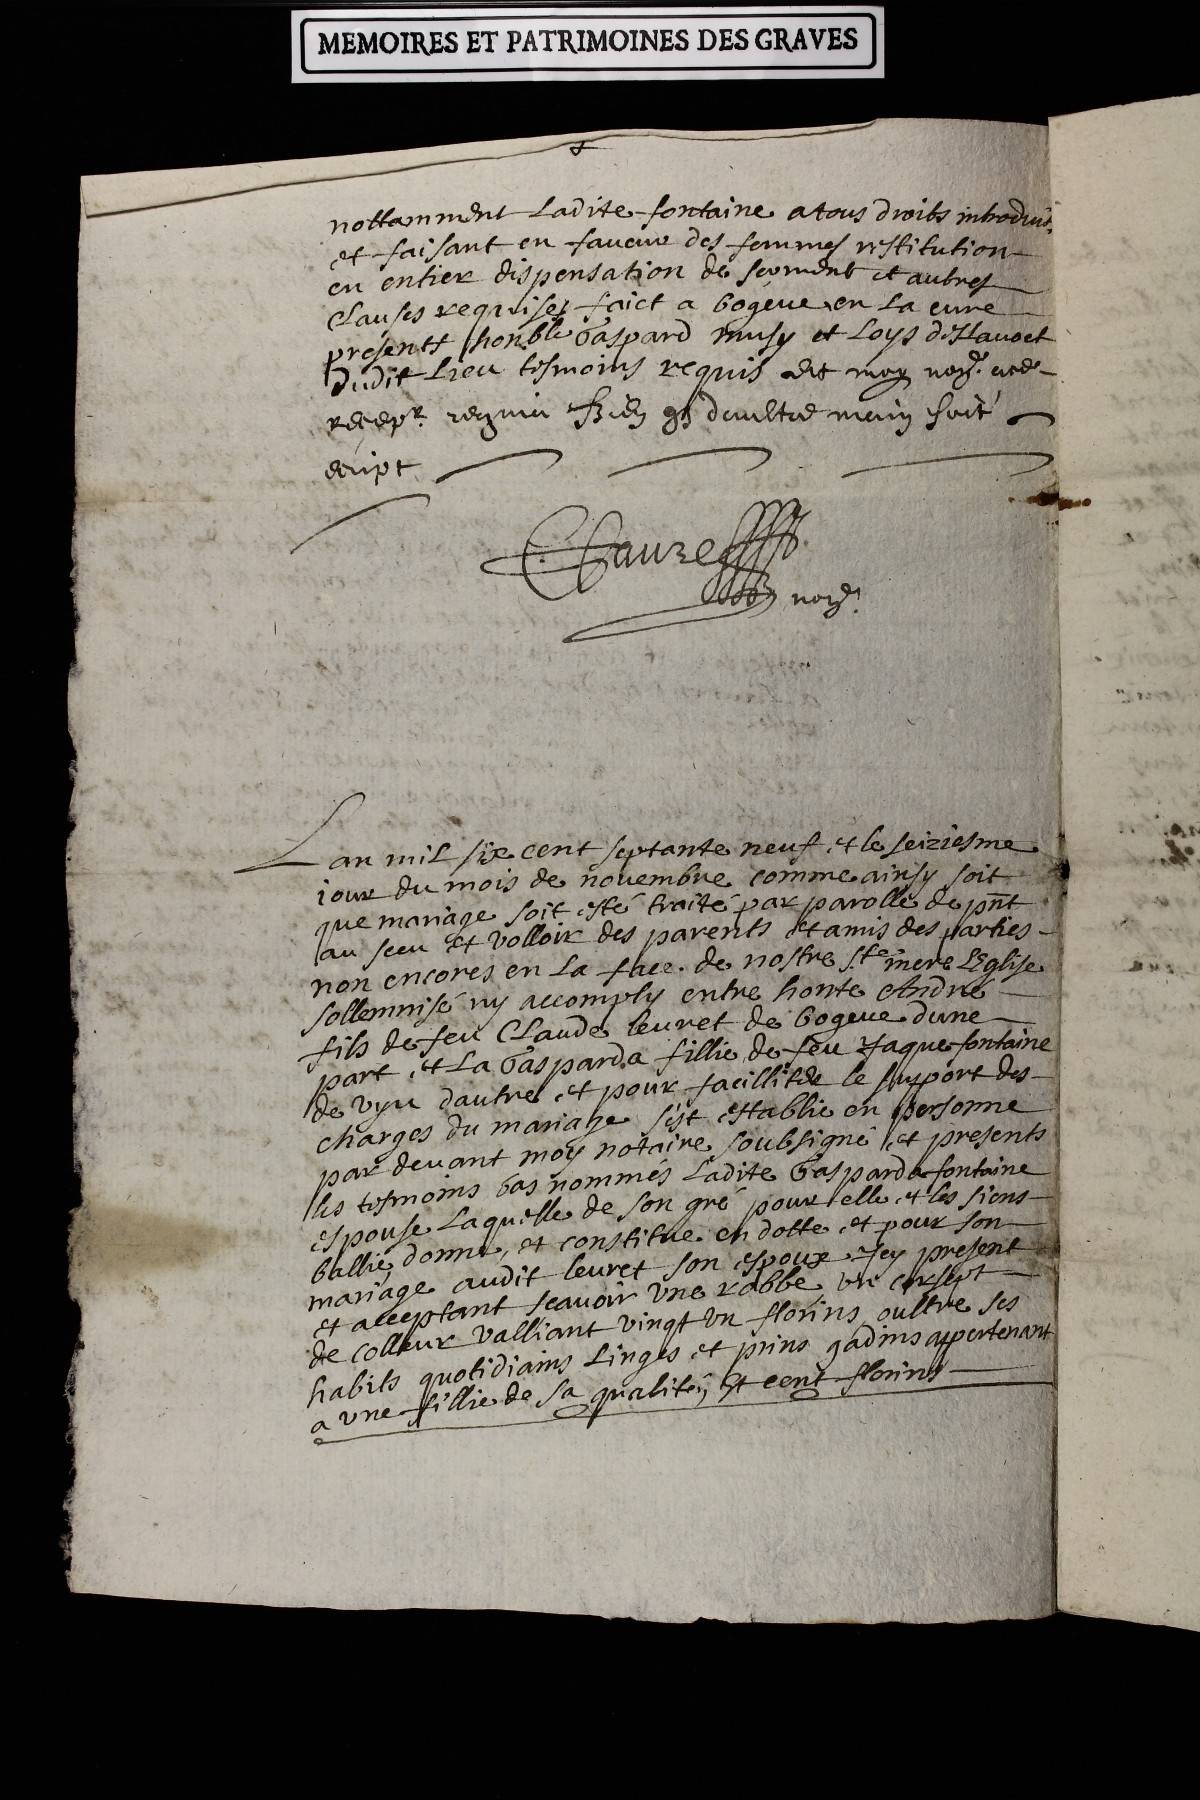 MEMOIRES ET PATRIMOINES DES GRAVES
nottamment Ladite fontaine a tous droits introduits
et faisant en faveur des femmes restitution
en entier dispensation de serment et autres
Clauses requises faict a bogeve en La cure
presents honble Gaspard musy et Loys
dudit Lieu tesmoins requis et moy nore.
recepr. requis bien que daultre main soit
script
nore.
Lan mil six cent septante neuf et le seiziesme
iour du mois de novembre comme ainsy soit
que mariage soit esté traité par parolle de pnt
au sceu et volloir des parents et amis des parties
non encores en La face de nostre Ste mere LEglise
sollemnisé ny accomply entre honte André
fils de feu Claude leuret de bogeve dune
part et La Gasparda fillie de feu Jaque fontaine
de vyu dautre et pour facilliter le suport des
charges du mariage s'est establie en personne
par devant moy notaire soubsigné et presents
les tesmoins bas nommés Ladite Gasparda fontaine
espouse Laquelle de son gré pour elle et les siens
ballie, donne, et constitue en dotte et pour son
mariage audit leuret son espoux Jcy present
et acceptant scavoir une robbe, un corsept
de colleur valliant vingt un florins oultre ses
habits quotidiains Linges et prins gadins appertenant
a une fillie de sa qualitéz, Et cent florins